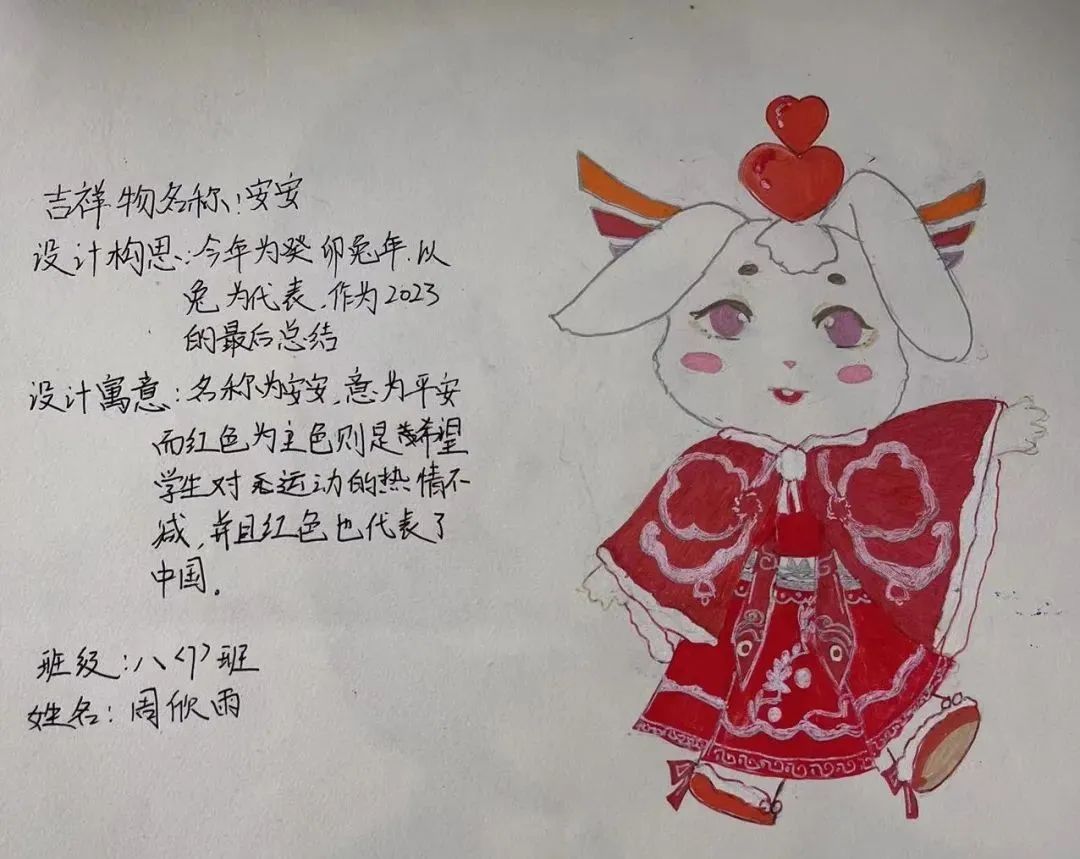 吉祥物名称:安安
设计构思:今年为癸卯兔年.以
兔为代表.作为2023
的最后总结
设计寓意:名称为安安,意为平安
而红色为主色则是希望
学生对运动的热情不
减,并且红色也代表了
中国。
班级:八<7>班
姓名:周欣雨